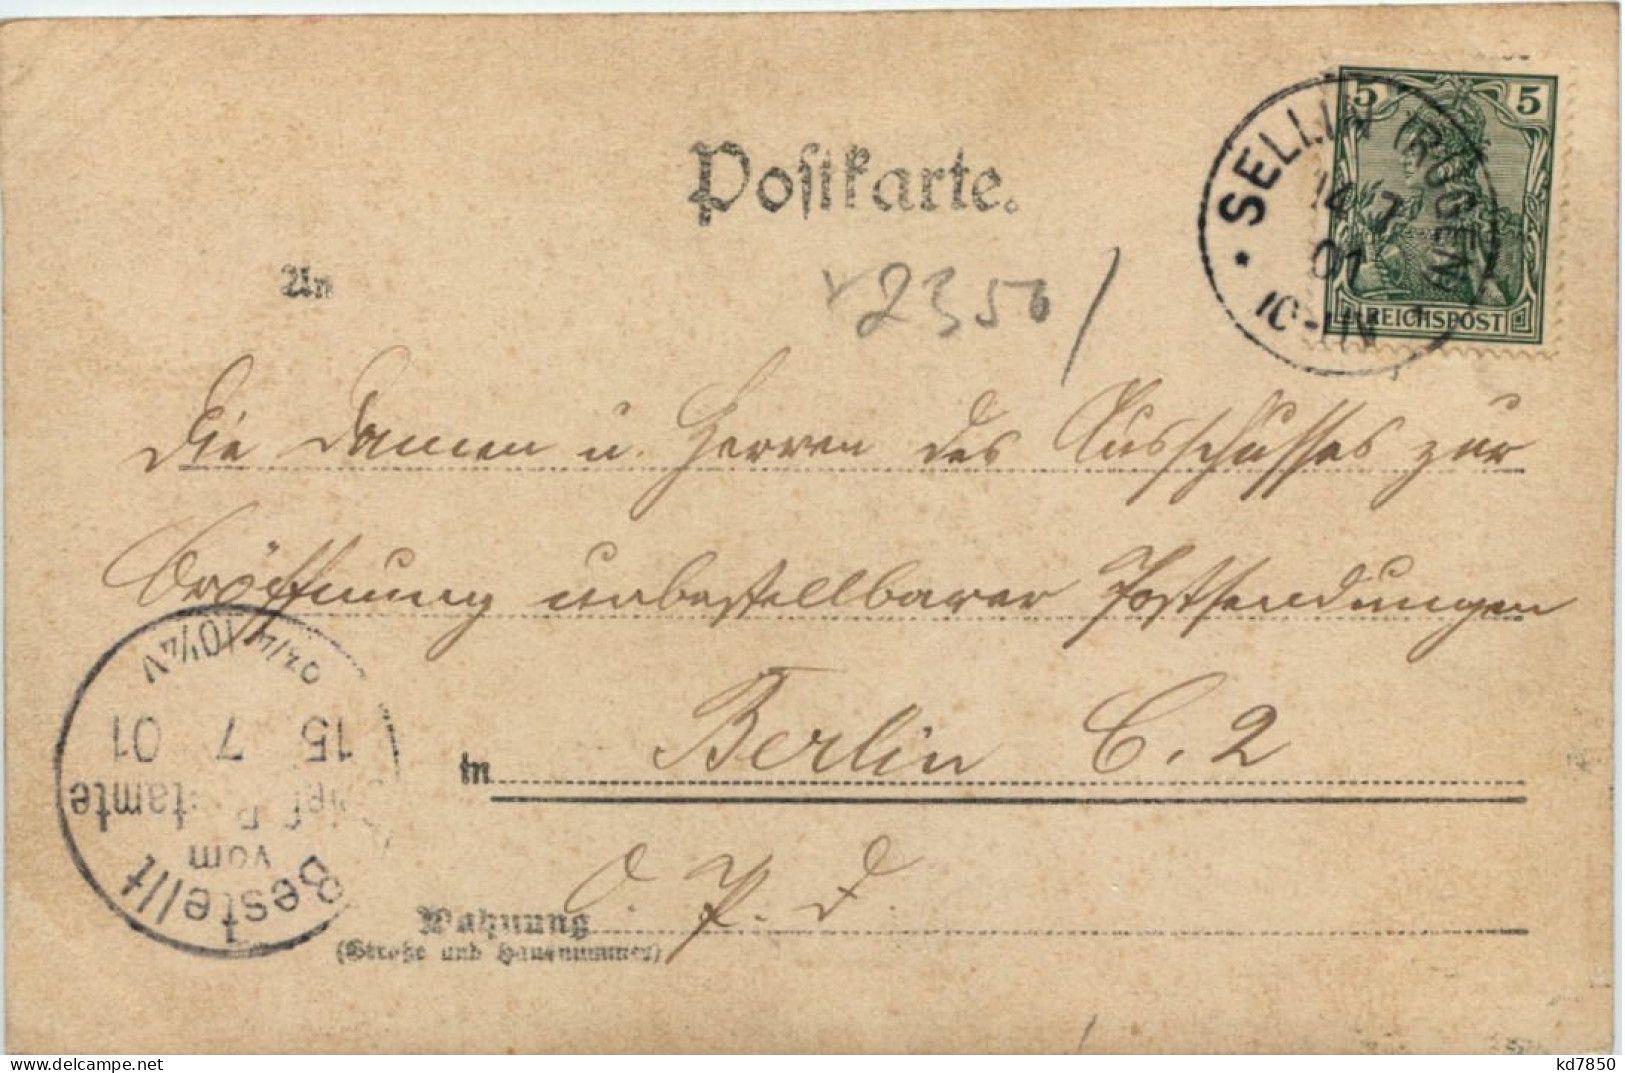 Postkarte.
5 5
REICHSPOST
SELLIN (RÜGEN)
14 7
01
10-11V
An
2350
Die Damen u. Herren des Ausschusses zur
Eröffnung unbestellbarer Postsendungen
in Berlin C. 2
O. P. D.
Wohnung
(Straße und Hausnummer)
Bestellt
vom
Postamte
15 7 01
10¼V
delcampe.net
kd7850